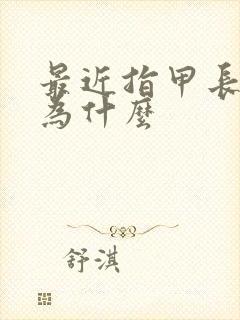 最近指甲長
為什麼
舒淇